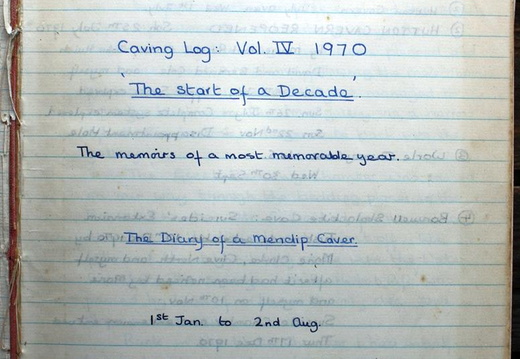 Caving Log: Vol. IV 1970
'The start of a Decade'.
The memoirs of a most memorable year.
The Diary of a Mendip Caver.
1st Jan. to 2nd Aug.